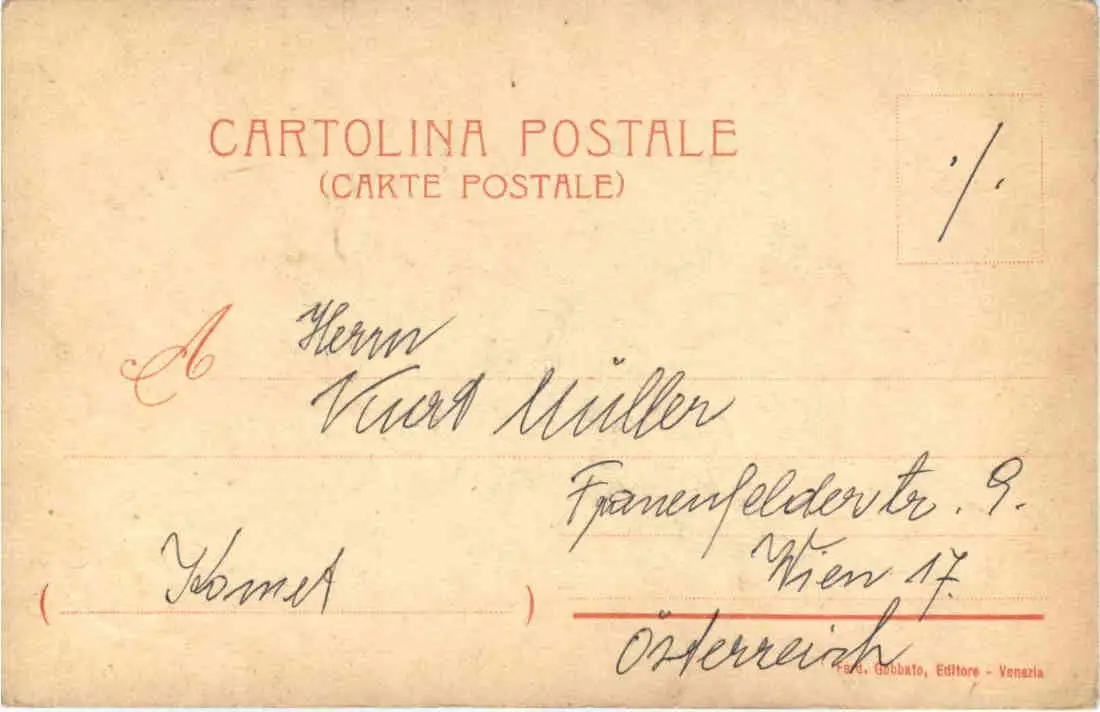 CARTOLINA POSTALE
(CARTE POSTALE)
./.
A
Herrn
Kurt Müller
Frauenfelderstr. 9.
Wien 17.
Komet
Österreich
Ferd. Gobbato, Editore - Venezia